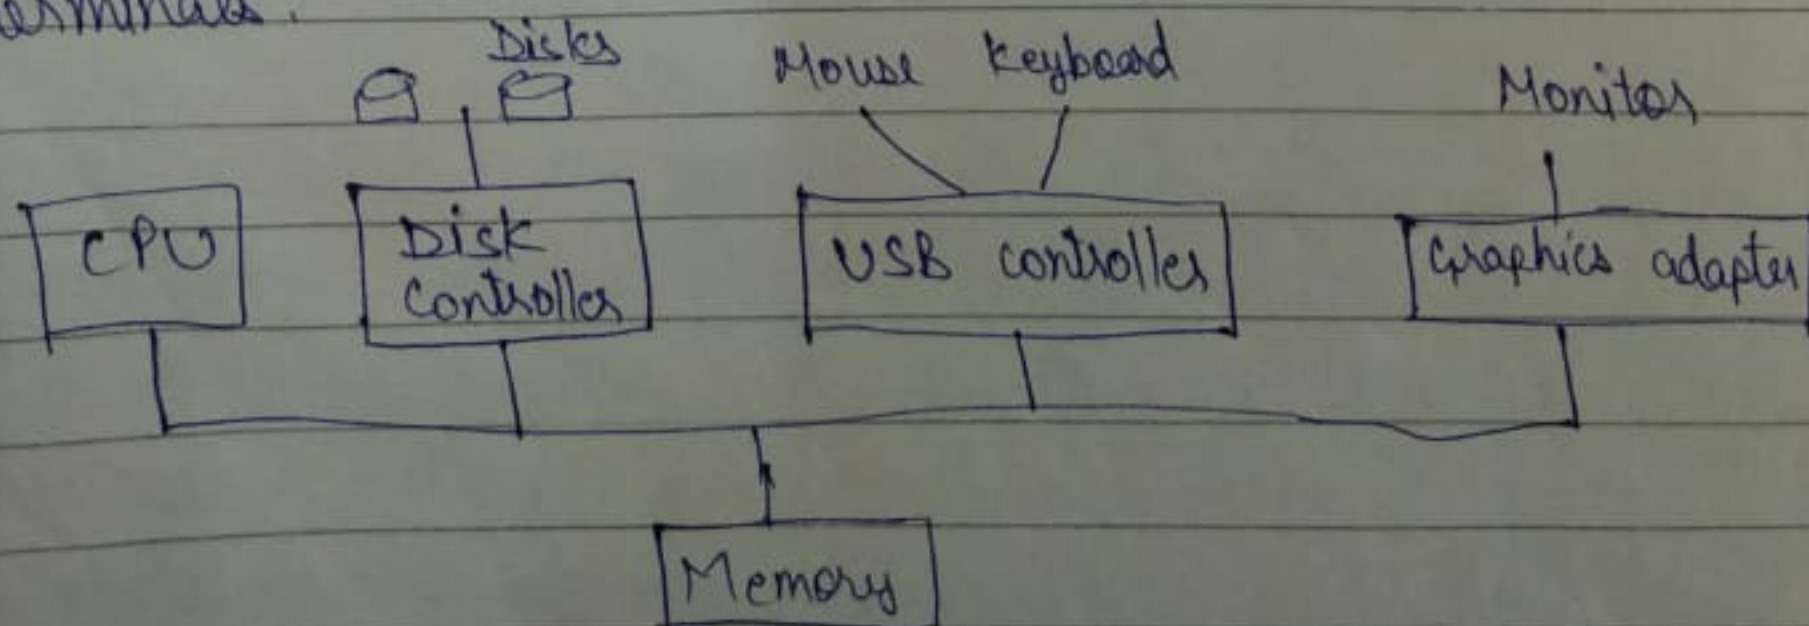 terminals.
Disks
Mouse Keyboard
Monitor
CPU
Disk
Controller
USB controller
Graphics adapter
Memory